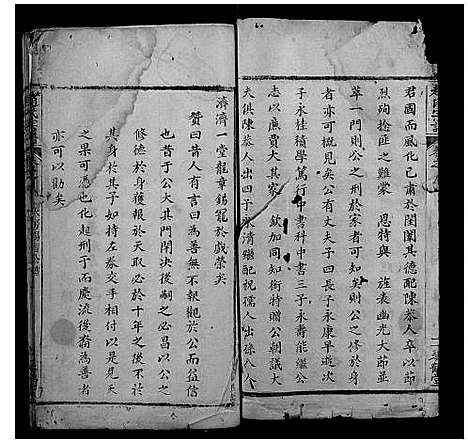 君國而風化已肅於閨闥其德配陳恭人卒以節
烈殉捻匪之難蒙 恩特與 旌表幽光大節並
萃一門則公之刑於家者可知矣則公之修於身
者亦可概見矣公有丈夫子四長子永康早逝次
子永牲積學篤行中書科中書三子永壽能繼公
志以廉賈大其家 欽加同知銜特贈公朝議大
夫俱陳恭人出四子永清繼配祝孺人出徐人人
濟濟一堂龍章錫寵於戲榮矣
贊曰昔人有言曰為善無不報觀於公而益信
也昔于公大其門閭決後嗣之必昌以公之
修德於身獲報於天取必於十年之後不於
其身於其子如持左券交手相付以是見天
之果可憑也化起刑于而慶流後裔為善者
亦可以勸矣